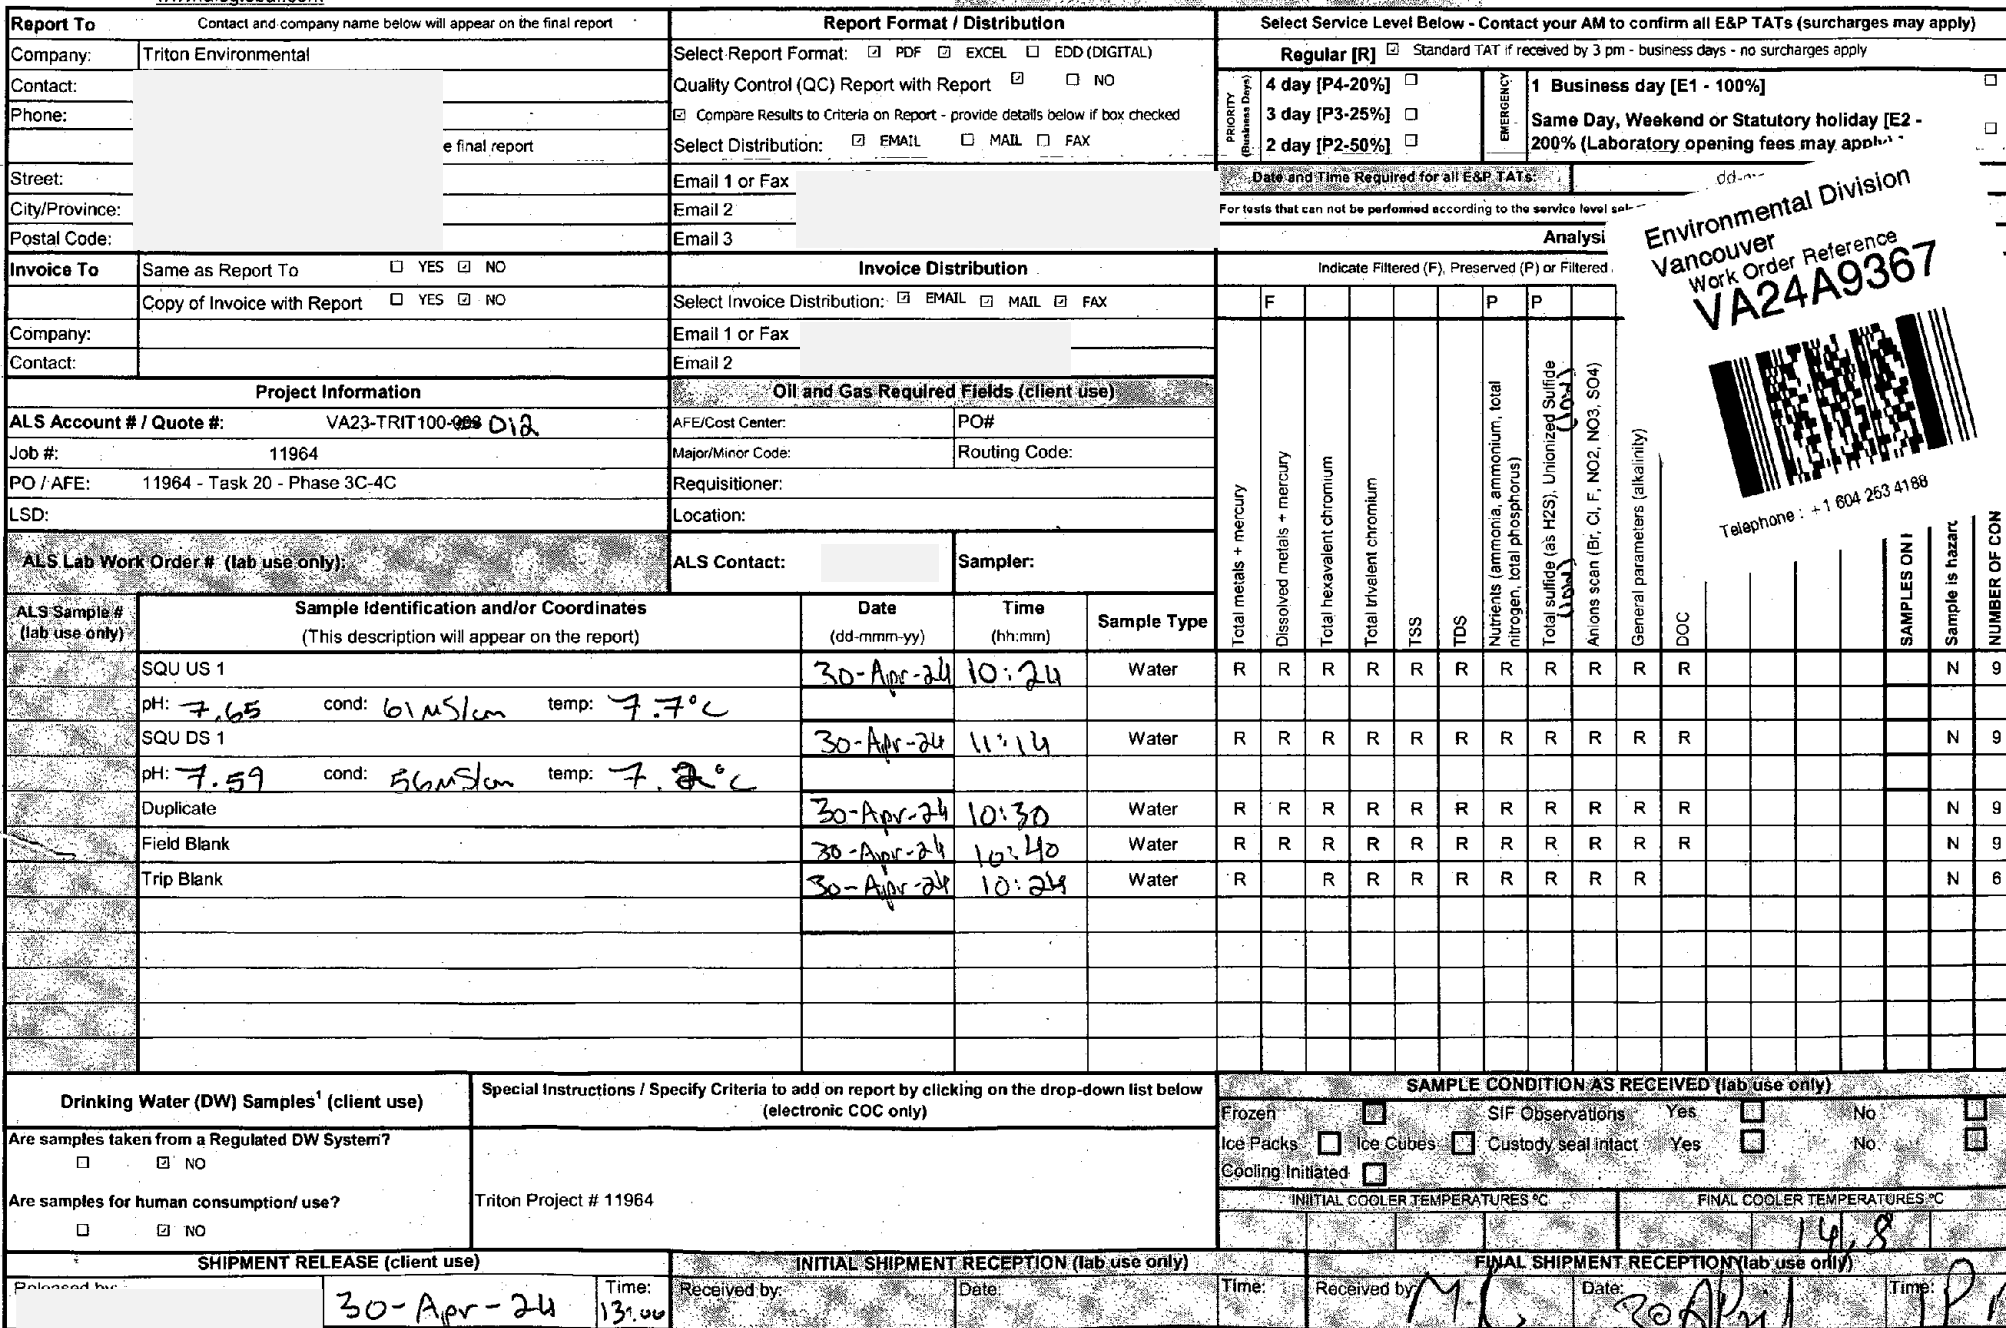 Report To Contact and company name below will appear on the final report
Company: Triton Environmental
Contact:
Phone:
e final report
Street:
City/Province:
Postal Code:
Invoice To Same as Report To ☐ YES ☑ NO
Copy of Invoice with Report ☐ YES ☑ NO
Company:
Contact:
Project Information
ALS Account # / Quote #: VA23-TRIT100- 012
Job #: 11964
PO / AFE: 11964 - Task 20 - Phase 3C-4C
LSD:
ALS Lab Work Order # (lab use only):
Report Format / Distribution
Select Report Format: ☑ PDF ☑ EXCEL ☐ EDD (DIGITAL)
Quality Control (QC) Report with Report ☑ ☐ NO
☑ Compare Results to Criteria on Report - provide details below if box checked
Select Distribution: ☑ EMAIL ☐ MAIL ☐ FAX
Email 1 or Fax
Email 2
Email 3
Invoice Distribution
Select Invoice Distribution: ☑ EMAIL ☑ MAIL ☑ FAX
Email 1 or Fax
Email 2
Oil and Gas Required Fields (client use)
AFE/Cost Center: PO#
Major/Minor Code: Routing Code:
Requisitioner:
Location:
ALS Contact: Sampler:
Select Service Level Below - Contact your AM to confirm all E&P TATs (surcharges may apply)
Regular [R] ☑ Standard TAT if received by 3 pm - business days - no surcharges apply
PRIORITY
(Business Days)
4 day [P4-20%] ☐
3 day [P3-25%] ☐
2 day [P2-50%] ☐
EMERGENCY
1 Business day [E1 - 100%] ☐
Same Day, Weekend or Statutory holiday [E2 - ☐
200% (Laboratory opening fees may apply)
Date and Time Required for all E&P TATs:
For tests that can not be performed according to the service level
Analysi
Indicate Filtered (F), Preserved (P) or Filtered
F P P
Environmental Division
Vancouver
Work Order Reference
VA24A9367
Telephone : +1 604 253 4188
Total metals + mercury
Dissolved metals + mercury
Total hexavalent chromium
Total trivalent chromium
TSS
TDS
Nutrients (ammonia, ammonium, total
nitrogen, total phosphorus)
Total sulfide (as H2S), Unionized Sulfide
Anions scan (Br, Cl, F, NO2, NO3, SO4)
General parameters (alkalinity)
DOC
SAMPLES ON
Sample is hazar
NUMBER OF CON
ALS Sample #
(lab use only)
Sample Identification and/or Coordinates
(This description will appear on the report)
Date
(dd-mmm-yy)
Time
(hh:mm)
Sample Type
SQU US 1 30-Apr-24 10:24 Water R R R R R R R R R R R N 9
pH: 7.65 cond: 61 µS/cm temp: 7.7°C
SQU DS 1 30-Apr-24 11:14 Water R R R R R R R R R R R N 9
pH: 7.59 cond: 56 µS/cm temp: 7.2°C
Duplicate 30-Apr-24 10:30 Water R R R R R R R R R R R N 9
Field Blank 30-Apr-24 10:40 Water R R R R R R R R R R R N 9
Trip Blank 30-Apr-24 10:24 Water R R R R R R R R R N 6
Drinking Water (DW) Samples¹ (client use)
Are samples taken from a Regulated DW System?
☐ ☑ NO
Are samples for human consumption/ use?
☐ ☑ NO
Special Instructions / Specify Criteria to add on report by clicking on the drop-down list below
(electronic COC only)
Triton Project # 11964
SAMPLE CONDITION AS RECEIVED (lab use only)
Frozen ☐ SIF Observations Yes ☐ No ☐
Ice Packs ☐ Ice Cubes ☐ Custody seal intact Yes ☐ No ☐
Cooling Initiated ☐
INIITIAL COOLER TEMPERATURES ºC FINAL COOLER TEMPERATURES ºC
14.8
SHIPMENT RELEASE (client use)
Released by: 30-Apr-24 Time: 13:00
INITIAL SHIPMENT RECEPTION (lab use only)
Received by: Date: Time:
FINAL SHIPMENT RECEPTION (lab use only)
Received by: Date: 30 April Time: